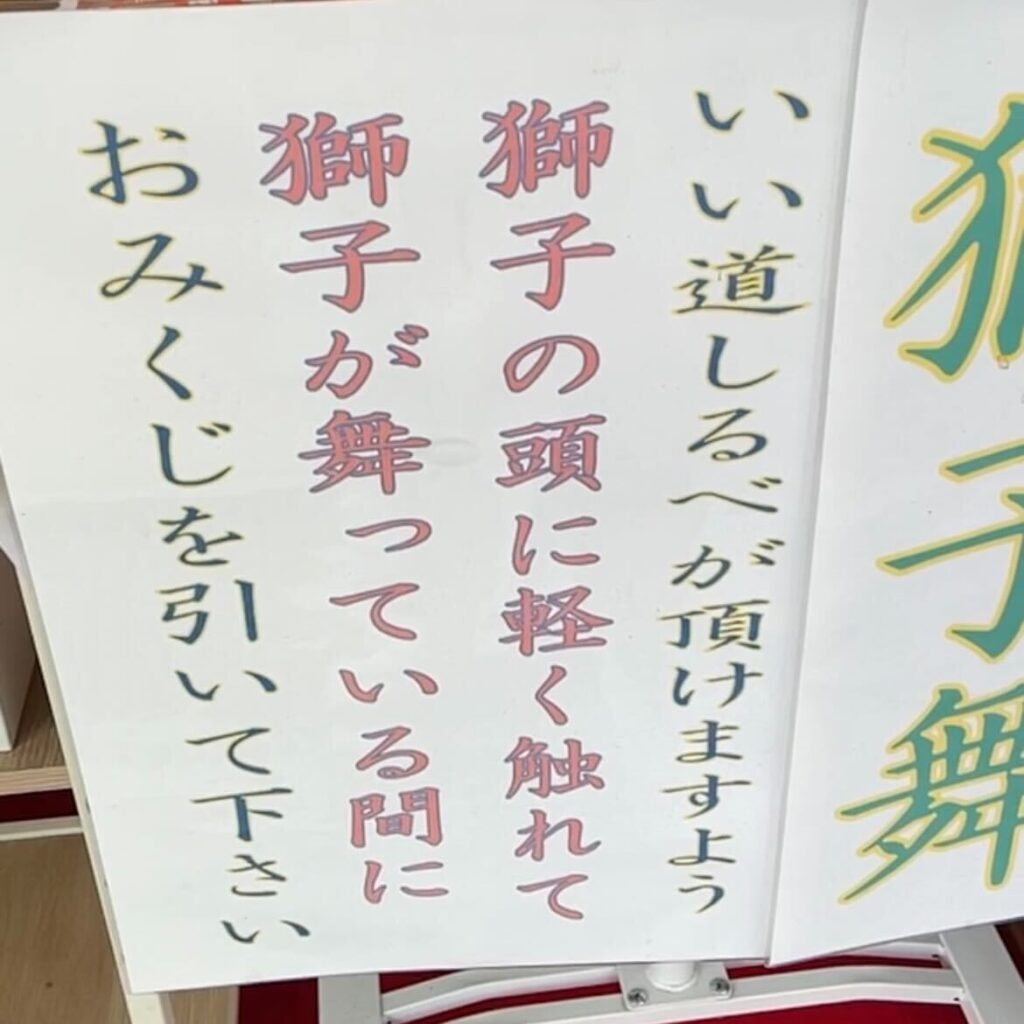 獅子舞
いい道しるべが頂けますよう
獅子の頭に軽く触れて
獅子が舞っている間に
おみくじを引いて下さい